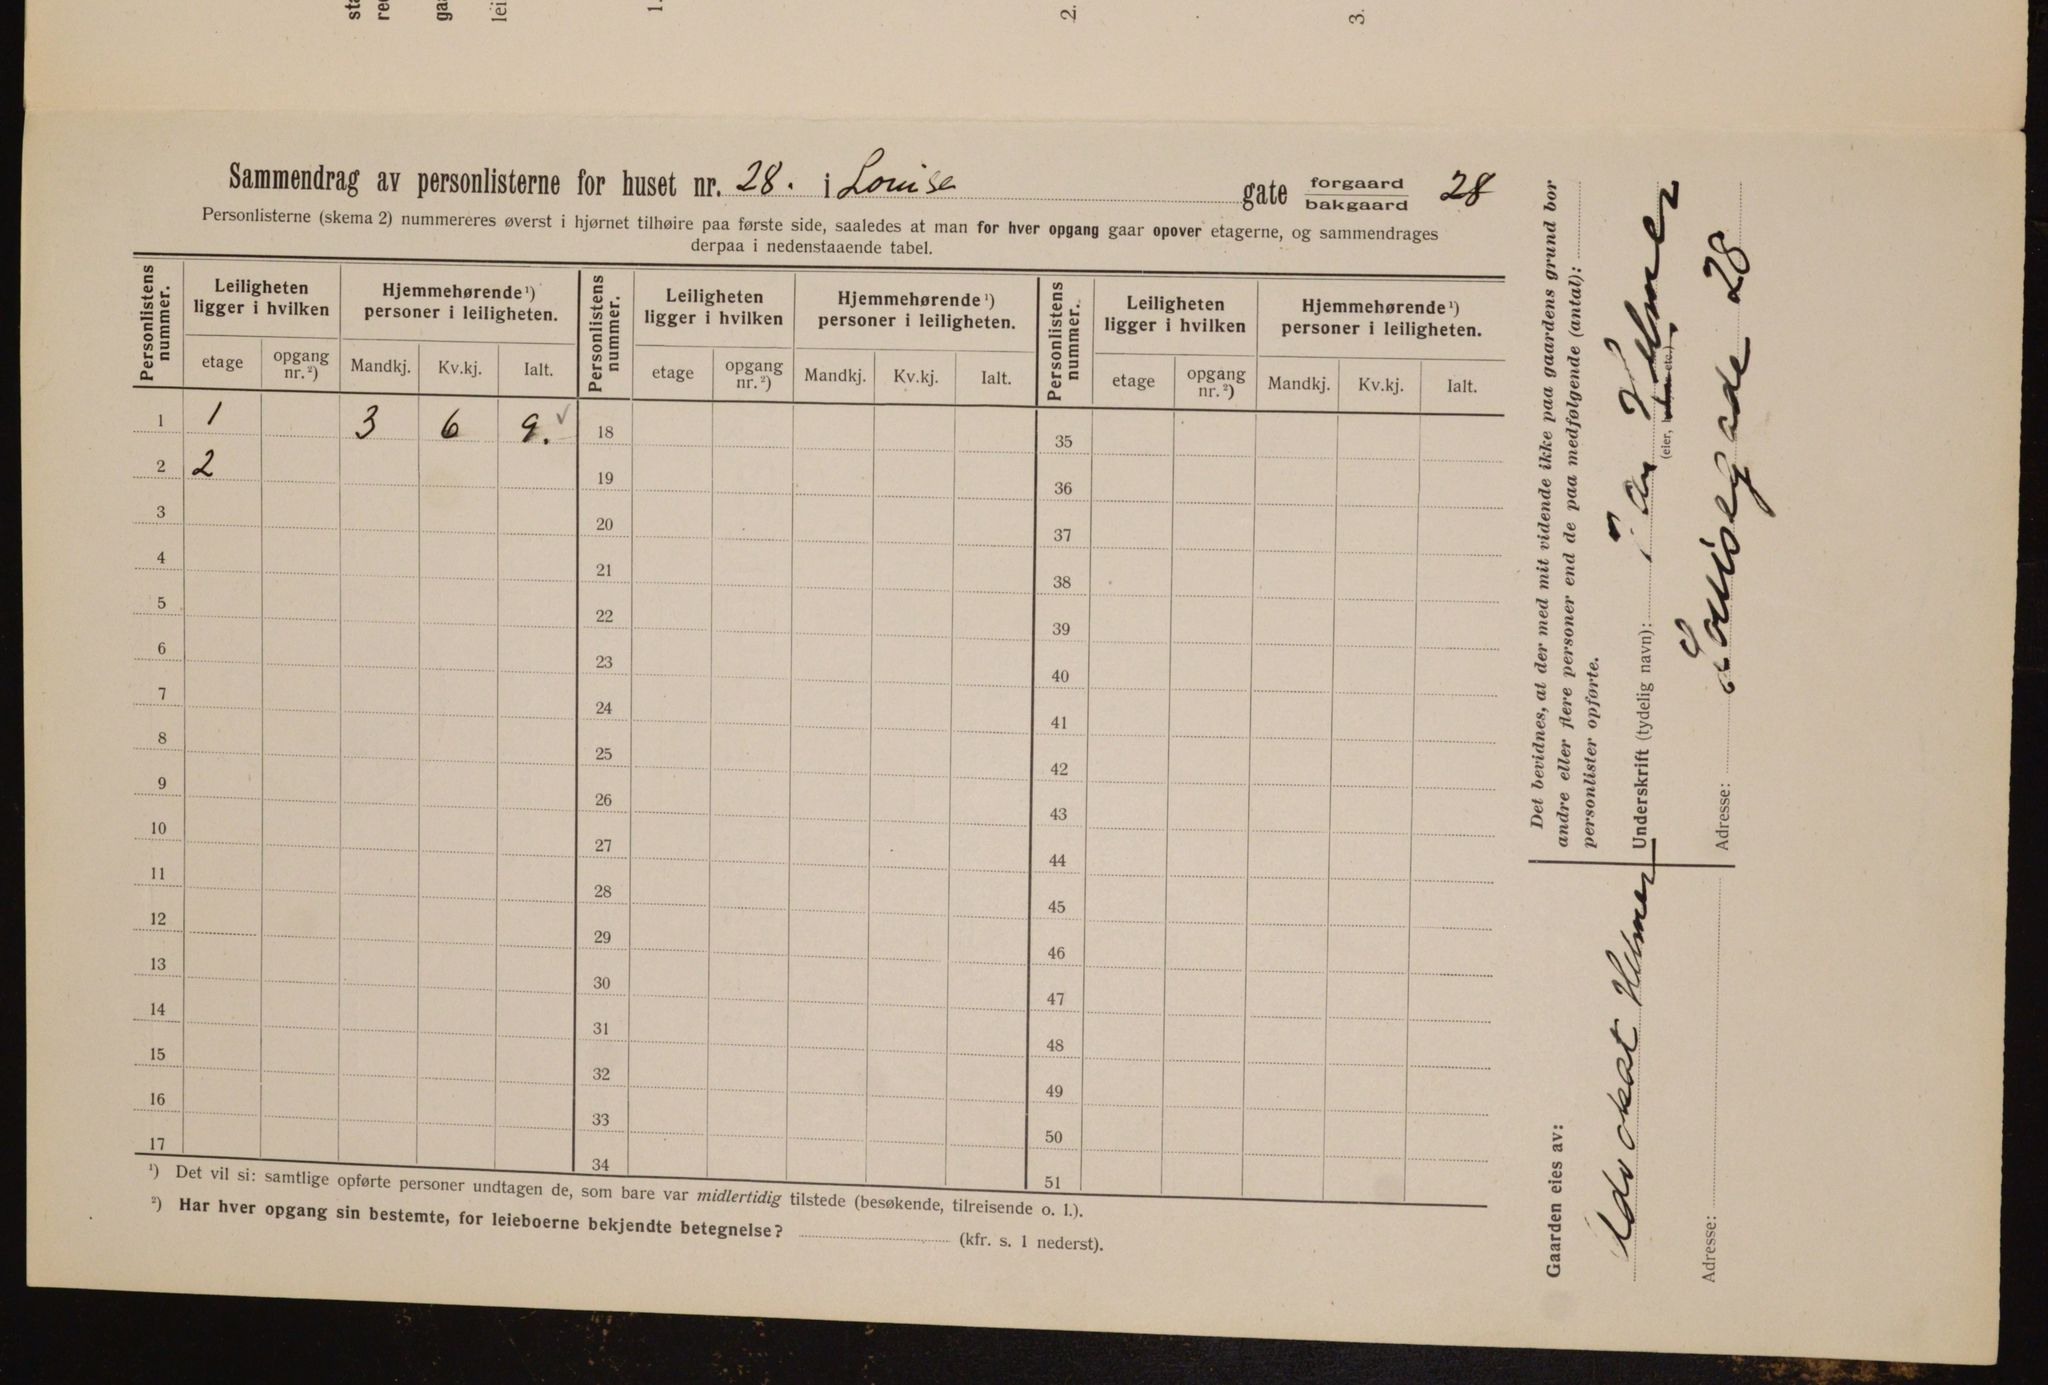 sta
re
ga
lei
1.
2.
3.
Sammendrag av personlisterne for huset nr. 28. i Louise gate forgaard bakgaard 28
Personlisterne (skema 2) nummereres øverst i hjørnet tilhøire paa første side, saaledes at man for hver opgang gaar opover etagerne, og sammendrages
derpaa i nedenstaaende tabel.
Personlistens nummer. Leiligheten ligger i hvilken Hjemmehørende ¹) personer i leiligheten. Personlistens nummer. Leiligheten ligger i hvilken Hjemmehørende ¹) personer i leiligheten. Personlistens nummer. Leiligheten ligger i hvilken Hjemmehørende ¹) personer i leiligheten.
etage opgang nr. ²) Mandkj. Kv.kj. Ialt. etage opgang nr. ²) Mandkj. Kv.kj. Ialt. etage opgang nr. ²) Mandkj. Kv.kj. Ialt.
1 1 3 6 9. ✓ 18 35
2 2 19 36
3 20 37
4 21 38
5 22 39
6 23 40
7 24 41
8 25 42
9 26 43
10 27 44
11 28 45
12 29 46
13 30 47
14 31 48
15 32 49
16 33 50
17 34 51
¹) Det vil si: samtlige opførte personer undtagen de, som bare var midlertidig tilstede (besøkende, tilreisende o. l.).
²) Har hver opgang sin bestemte, for leieboerne bekjendte betegnelse? (kfr. s. 1 nederst).
Det bevidnes, at der med mit vidende ikke paa gaardens grund bor
andre eller flere personer end de paa medfølgende (antal):
personlister opførte.
Underskrift (tydelig navn):
(eier, etc.)
Adresse: Louisegade 28
Gaarden eies av:
Advokat
Adresse: